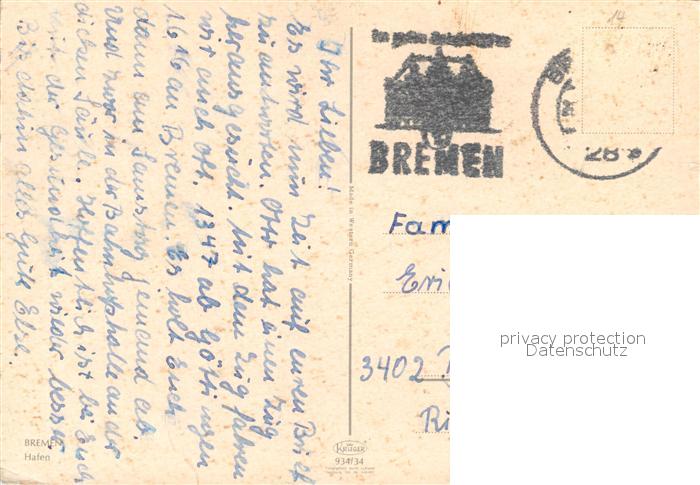 Ihr Lieben!
Es wird nun Zeit auf euren Brief
zu antworten. Otto hat einen Zug
herausgesucht. Mit dem Zug fahren
wir auch oft. 1347 ab Göttingen
1616 an Bremen. Es holt Euch
dann am Samstag jemand ab.
Und zwar in der Bahnhofshalle an der
dicken Säule. Hoffentlich ist bei Euch
mit der Gesundheit wieder besser
Bis dahin alles Gute Else.
BREMEN
Hafen
Made in Western Germany
KRÜGER
934/34
BREMEN
28
14
Fam
Eri
3402
Ri
privacy protection
Datenschutz